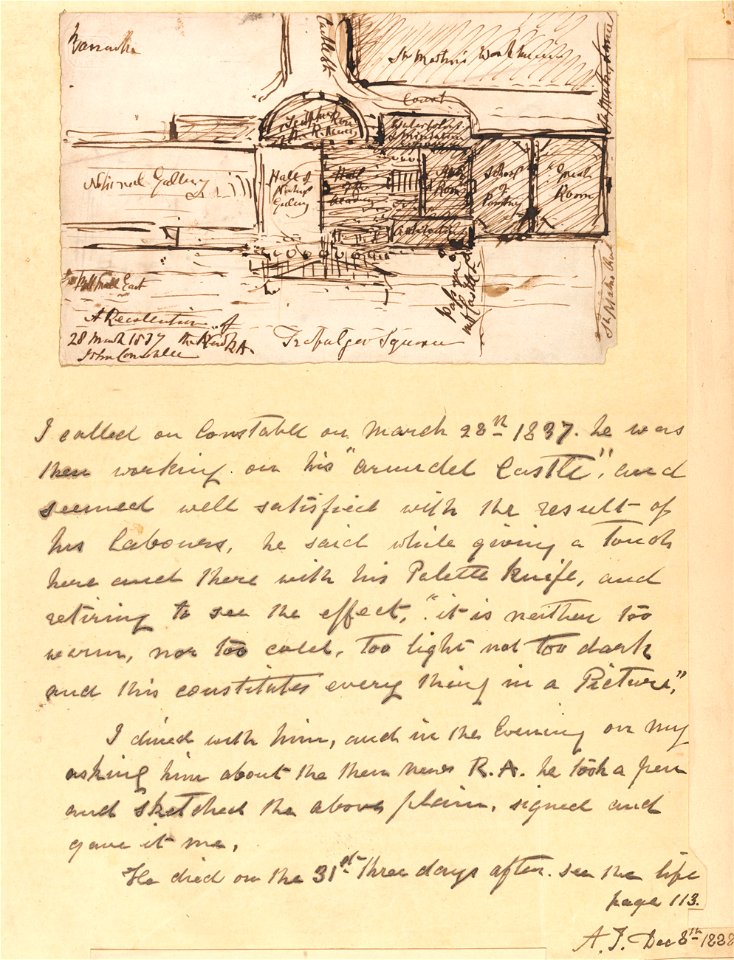 Barracks
Castle St
St Martin's Workhouse
Court
Sculpture
National Gallery
Hall of
National
Gallery
Hall
of the
Academy
School
of
Painting
Great
Room
Pall Mall East
A Recollection of
28 March 1837 the New RA.
John Constable
Trafalgar Square
I called on Constable on March 28th 1837. he was
then working on his "Arundel Castle", and
seemed well satisfied with the result of
his labours, he said while giving a touch
here and there with his Palette knife, and
retiring to see the effect, "it is neither too
warm, nor too cold, too light not too dark
and this constitutes every thing in a Picture,"
I dined with him, and in the Evening on my
asking him about the then new R.A. he took a pen
and sketched the above plan, signed and
gave it me,
He died on the 31st three days after. see the life
page 113.
A.T. Dec 8th 1888